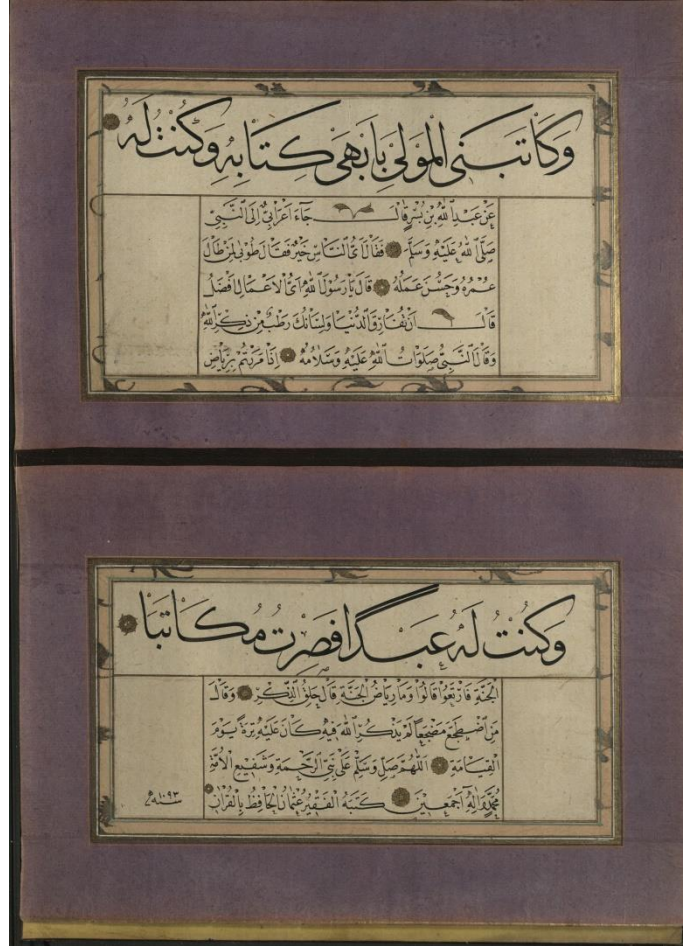 وكاتبني المولى بابهى كتابه وكنت له
عَنْ عَبْدِ اللّٰهِ بْنِ بُسْرٍ قَالَ جَاءَ اَعْرَابِيٌّ اِلَى النَّبِيِّ
صَلَّى اللّٰهُ عَلَيْهِ وَسَلَّمَ فَقَالَ اَىُّ النَّاسِ خَيْرٌ فَقَالَ طُوبٰى لِمَنْ طَالَ
عُمْرُهُ وَحَسُنَ عَمَلُهُ قَالَ يَا رَسُولَ اللّٰهِ اَىُّ الْاَعْمَالِ اَفْضَلُ
قَالَ اَنْ تُفَارِقَ الدُّنْيَا وَلِسَانُكَ رَطْبٌ مِنْ ذِكْرِ اللّٰهِ
وَقَالَ النَّبِيُّ صَلَوَاتُ اللّٰهِ عَلَيْهِ وَسَلَامُهُ اِذَا مَرَرْتُمْ بِرِيَاضِ
وَكُنْتُ لَهُ عَبْدًا فَصِرْتُ مُكَاتَبَا
الْجَنَّةِ فَارْتَعُوا قَالُوا وَمَا رِيَاضُ الْجَنَّةِ قَالَ حِلَقُ الذِّكْرِ وَقَالَ
مَنِ اضْطَجَعَ مَضْجَعًا لَمْ يَذْكُرِ اللّٰهَ فِيهِ كَانَ عَلَيْهِ تِرَةً يَوْمَ
الْقِيَامَةِ اَللّٰهُمَّ صَلِّ وَسَلِّمْ عَلٰى نَبِيِّ الرَّحْمَةِ وَشَفِيعِ الْاُمَّةِ
مُحَمَّدٍ وَاٰلِهِ اَجْمَعِينَ كَتَبَهُ الْفَقِيرُ عُثْمَانُ الْحَافِظُ بِالْقُرْاٰنِ
سنه ١٠٩٣